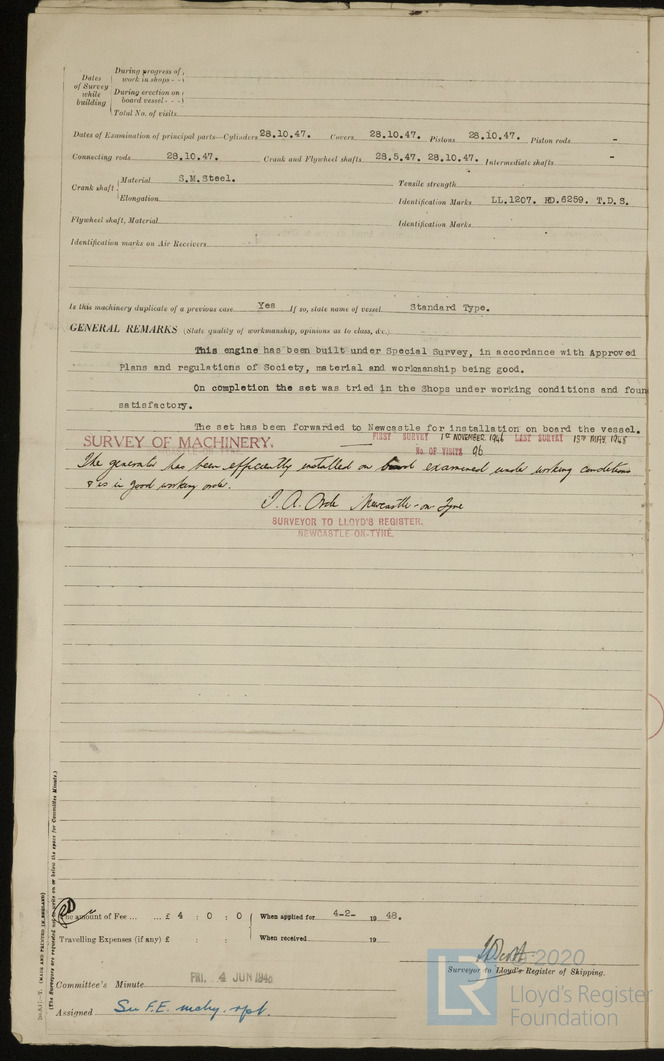 Dates of Survey while building
During progress of work in shops - -
During erection on board vessel - - -
Total No. of visits
Dates of Examination of principal parts—Cylinders 28.10.47. Covers 28.10.47. Pistons 28.10.47. Piston rods -
Connecting rods 28.10.47. Crank and Flywheel shafts 28.5.47. 28.10.47. Intermediate shafts -
Crank shaft Material S.M.Steel. Tensile strength
Elongation Identification Marks LL.1207. HD.6259. T.D.S.
Flywheel shaft, Material Identification Marks
Identification marks on Air Receivers
Is this machinery duplicate of a previous case Yes If so, state name of vessel Standard Type.
GENERAL REMARKS (State quality of workmanship, opinions as to class, &c.)
This engine has been built under Special Survey, in accordance with Approved
Plans and regulations of Society, material and workmanship being good.
On completion the set was tried in the Shops under working conditions and foun
satisfactory.
The set has been forwarded to Newcastle for installation on board the vessel.
SURVEY OF MACHINERY. FIRST SURVEY 1st NOVEMBER 1946 LAST SURVEY 19TH MAY 1948
No. OF VISITS 96
The generator has been efficiently installed on board examined under working conditions
& is in good working order.
Newcastle-on-Tyne
SURVEYOR TO LLOYD'S REGISTER.
NEWCASTLE-ON-TYNE.
The amount of Fee ... ... £ 4 : 0 : 0 When applied for 4-2- 19 48.
Travelling Expenses (if any) £ : : When received 19
Surveyor to Lloyd's Register of Shipping.
Committee's Minute FRI. 4 JUN 1948
Assigned See F.E. mchy. rpt.
(MADE AND PRINTED IN ENGLAND)
(The Surveyors are requested not to write on or below the space for Committee Minute.)
2020
LR
Lloyd's Register
Foundation